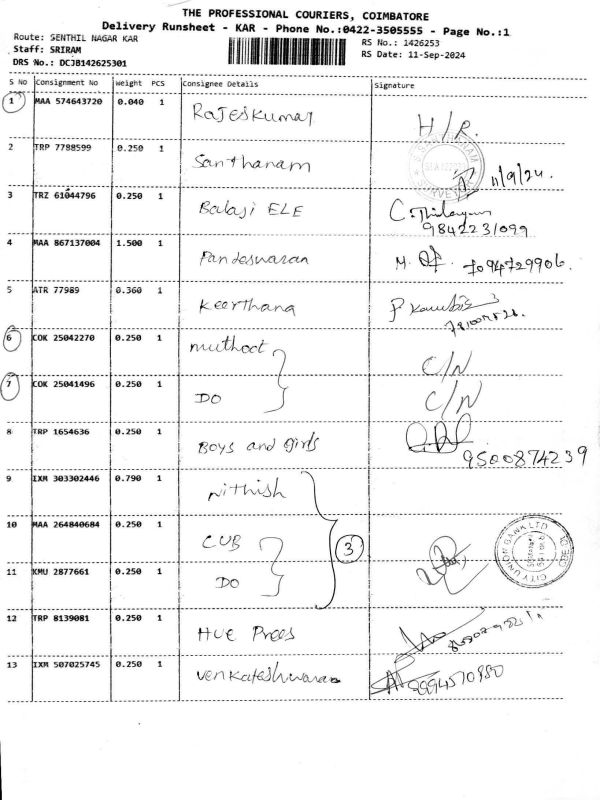 THE PROFESSIONAL COURIERS, COIMBATORE
Delivery Runsheet - KAR - Phone No.:0422-3505555 - Page No.:1
Route: SENTHIL NAGAR KAR
Staff: SRIRAM
DRS No.: DCJB142625301
RS No.: 1426253
RS Date: 11-Sep-2024
S No Consignment No Weight PCS Consignee Details Signature
1 MAA 574643720 0.040 1 Rajeskumar H/R.
2 TRP 7788599 0.250 1 Santhanam 11/9/24.
3 TRZ 61044796 0.250 1 Balaji ELE
9842231099
4 MAA 867137004 1.500 1 Pandeswaran M. 7094729906.
5 ATR 77989 0.360 1 Keerthana
6 COK 25042270 0.250 1 muthoot C/N
7 COK 25041496 0.250 1 DO C/N
8 TRP 1654636 0.250 1 Boys and girls
9500874239
9 IXM 303302446 0.790 1 Nithish
10 MAA 264840684 0.250 1 CUB 3 CITY UNION BANK LTD
11 KMU 2877661 0.250 1 DO
12 TRP 8139081 0.250 1 HUE Prees
13 IXM 507025745 0.250 1 Venkateshwaran